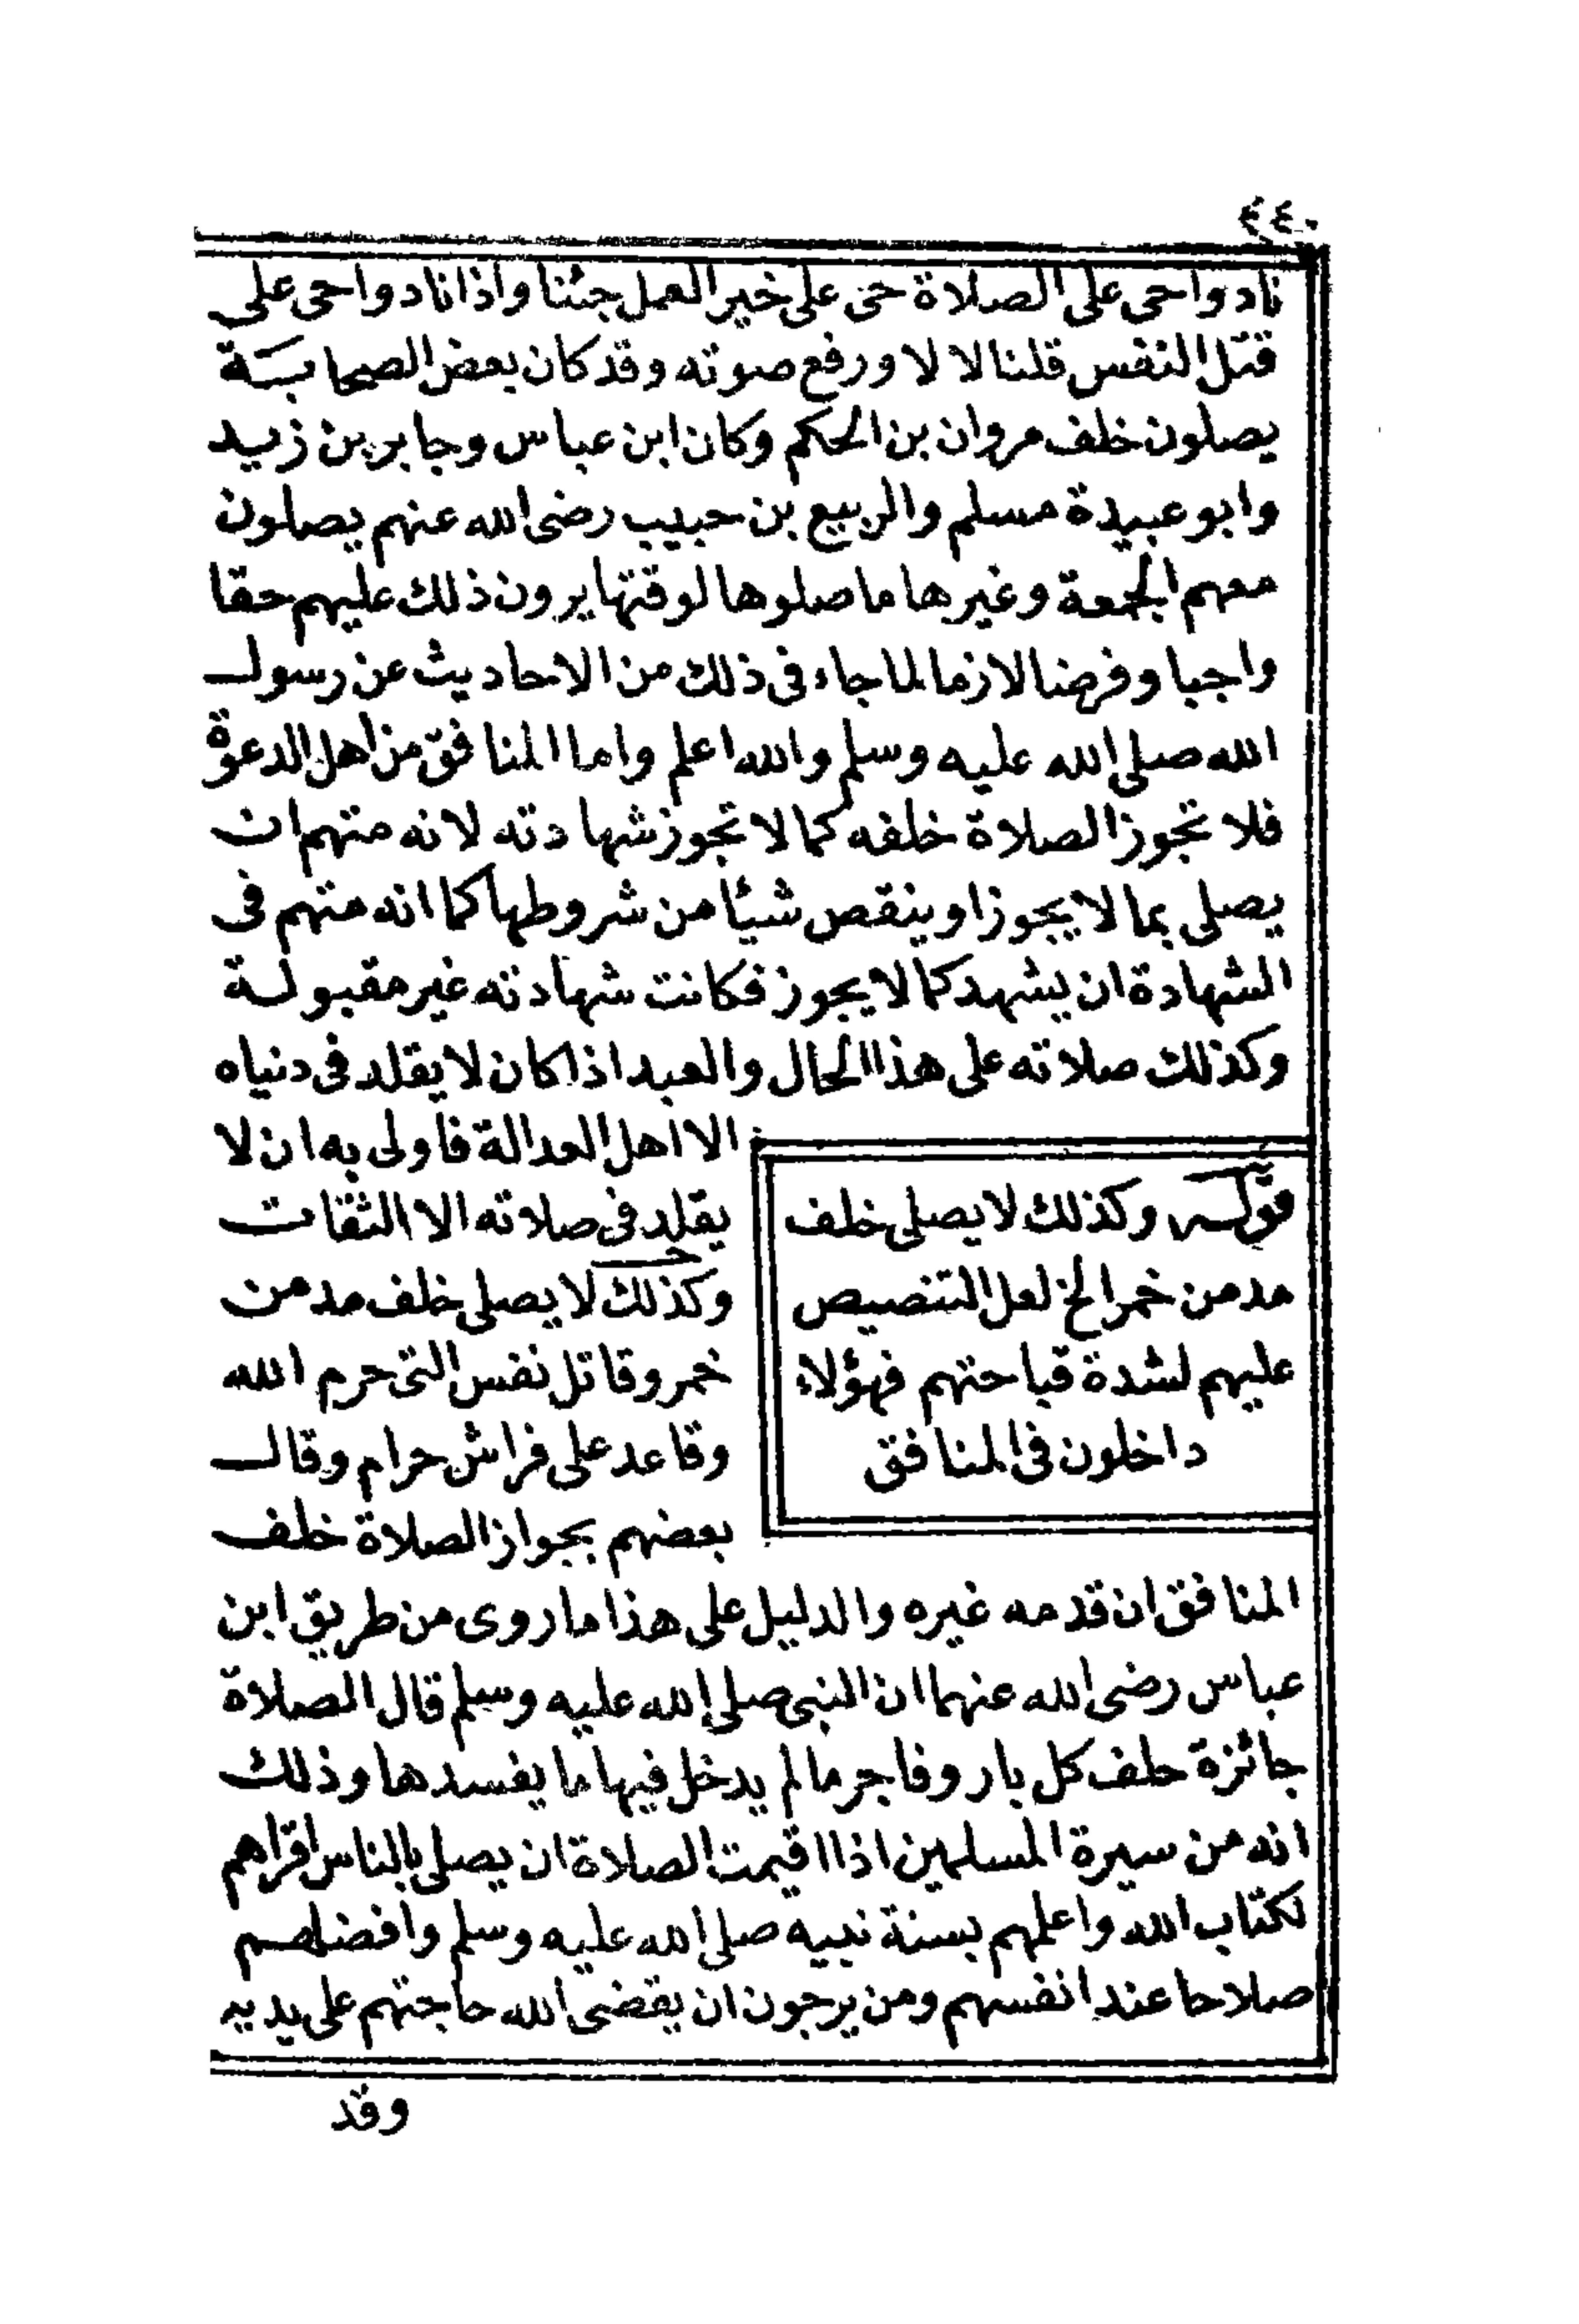 ٤٤٠
نادوا حى على الصلاة حى على خير العمل جئنا واذا نادوا حى على
قتل النفس قلنا لا لا ورفع صوته وقد كان بعض الصحابة
يصلون خلف مروان بن الحكم وكان ابن عباس وجابر بن زيد
وابو عبيدة مسلم والربيع بن حبيب رضى الله عنهم يصلون
معهم الجمعة وغيرها ما صلوها لوقتها يرون ذلك عليهم حقا
واجبا وفرضا لازما لما جاء فى ذلك من الاحاديث عن رسول
الله صلى الله عليه وسلم والله اعلم واما المنافق من اهل الدعوة
فلا تجوز الصلاة خلفه كما لا تجوز شهادته لانه متهم ان
يصلى بما لا يجوز او ينقص شيئا من شروطها كما انه متهم فى
الشهادة ان يشهد كما لا يجوز فكانت شهادته غير مقبولة
وكذلك صلاته على هذا الحال والعبد اذا كان لا يقلد فى دنياه
الا اهل العدالة فاولى به ان لا
يقلد فى صلاته الا الثقات
وكذلك لا يصلى خلف مدمن
خمر وقاتل نفس التى حرم الله
وقاعد على فراش حرام وقال
بعضهم بجواز الصلاة خلف
قوله وكذلك لا يصلى خلف
مدمن خمر الخ لعل التنصيص
عليهم لشدة قباحتهم فهؤلاء
داخلون فى المنافق
المنافق ان قدمه غيره والدليل على هذا ما روى من طريق ابن
عباس رضى الله عنهما ان النبى صلى الله عليه وسلم قال الصلاة
جائزة حلف كل بار وفاجر ما لم يدخل فيها ما يفسدها وذلك
انه من سيرة المسلمين اذا اقيمت الصلاة ان يصلى بالناس اقراهم
لكتاب الله واعلمهم بسنة نبيه صلى الله عليه وسلم وافضلهم
صلاحا عند انفسهم ومن يرجون ان يقضى الله حاجتهم على يديه
وقد